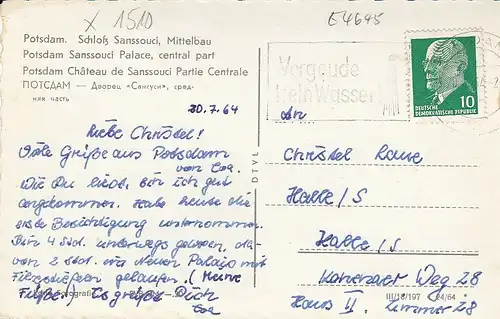 x 1510
E4695
Potsdam. Schloß Sanssouci, Mittelbau
Potsdam Sanssouci Palace, central part
Potsdam Château de Sanssouci Partie Centrale
ПОТСДАМ — Дворец «Сансуси», сред-
няя часть
20.7.64
Liebe Christel!
Viele Grüße aus Potsdam
von Eva.
Wie Du siehst, bin ich gut
angekommen. Habe heute die
erste Besichtigung unternommen.
Bin 4 Std. unterwegs gewesen,
von 2 Std. im Neuen Palais mit
Filzpantoffeln gelaufen. (Meine
Füße!) Es grüßt Dich
Eva
DTVL
Vergeude
kein Wasser
10
DEUTSCHE
DEMOKRATISCHE REPUBLIK
An
Christel
Halle/S
Halle/S
Kanenaer Weg 28
Haus II. Zimmer 28
III/18/197 24/64